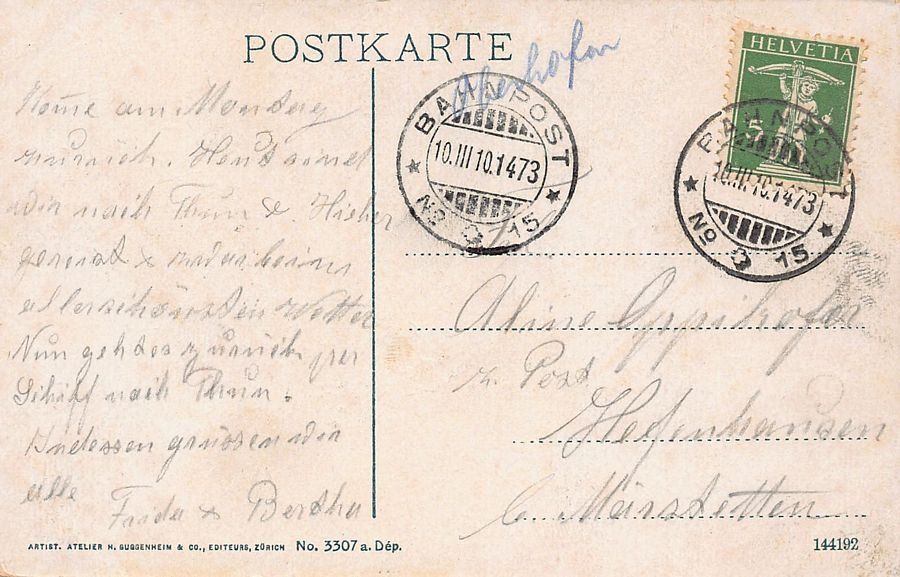 POSTKARTE
Oberhofen
HELVETIA
5
BAHNPOST
10.III 10.1473
No 3 15
BAHNPOST
10.III 10.1473
No 3 15
Komme am Montag
zurück. Heut sind
wir nach Thun &
gereist & zwar beim
allerschönsten Wetter
Nun geht es zurück per
Schiff nach Thun.
Indessen grüssen wir
alle
Frida & Bertha
Frl.
Aline Oppikofer
z. Post
Hefenhausen
b. Märstetten
ARTIST. ATELIER H. GUGGENHEIM & CO., EDITEURS, ZÜRICH No. 3307 a. Dép.
144192